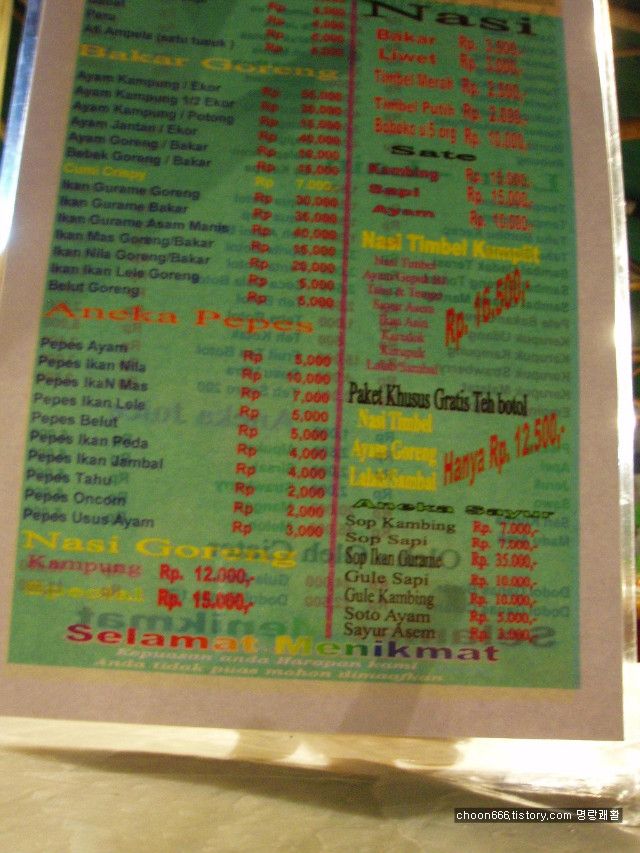 Paru Rp 4,000
Ati Ampela (satu tusuk ) Rp
Bakar Goreng
Ayam Kampung / Ekor Rp
Ayam Kampung 1/2 Ekor Rp
Ayam Kampung / Potong Rp
Ayam Jantan / Ekor Rp 40,000
Ayam Goreng / Bakar Rp
Bebek Goreng / Bakar Rp
Cumi Crispy Rp 7,000
Ikan Gurame Goreng Rp 30,000
Ikan Gurame Bakar Rp 35,000
Ikan Gurame Asam Manis Rp 40,000
Ikan Mas Goreng/Bakar Rp
Ikan Nila Goreng/Bakar Rp
Ikan Ikan Lele Goreng Rp 5,000
Belut Goreng Rp 5,000
Aneka Pepes
Pepes Ayam Rp 5,000
Pepes Ikan Nila Rp 10,000
Pepes IkaN Mas Rp 7,000
Pepes Ikan Lele Rp 5,000
Pepes Belut Rp 5,000
Pepes Ikan Peda Rp 4,000
Pepes Ikan Jambal Rp 4,000
Pepes Tahu Rp 2,000
Pepes Oncom Rp 2,000
Pepes Usus Ayam Rp 3,000
Nasi Goreng
Kampung Rp. 12.000,-
Special Rp. 15.000,-
Nasi
Bakar Rp. 3.500,-
Liwet Rp.
Timbel Merah Rp. 2.500,-
Timbel Putih Rp.
Boboko u 5 org Rp. 10.000,-
Sate
Kambing Rp. 15.000,-
Sapi Rp. 15.000,-
Ayam Rp. 10.000,-
Nasi Timbel Kumplit
Nasi Timbel
Ayam/Gepuk
Tahu & Tempe
Sayur Asem
Ikan Asin
Karedok
Kerupuk
Lalab/Sambal
Rp. 16.500,-
Paket Khusus Gratis Teh botol
Nasi Timbel
Ayam Goreng
Lalab/Sambal
Hanya Rp. 12.500,-
Aneka Sayur
Sop Kambing Rp. 7.000,-
Sop Sapi Rp. 7.000,-
Sop Ikan Gurame Rp. 35.000,-
Gule Sapi Rp. 10.000,-
Gule Kambing Rp. 10.000,-
Soto Ayam Rp. 5.000,-
Sayur Asem Rp. 3.000,-
Selamat Menikmat
Kepuasan anda Harapan kami
Anda tidak puas mohon dimaafkan
choon666.tistory.com 명랑쾌활